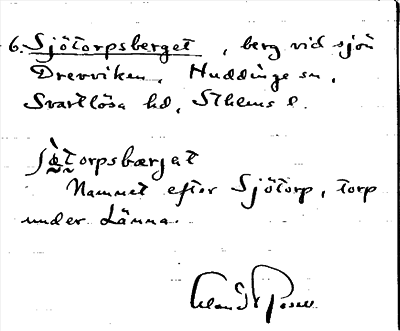 6. Sjötorpsberget, berg vid sjön
Drevviken, Huddinge sn,
Svartlösa hd, Sthlms l.
ʃö̀torpsbærjat
Namnet efter Sjötorp, torp
under Länna.